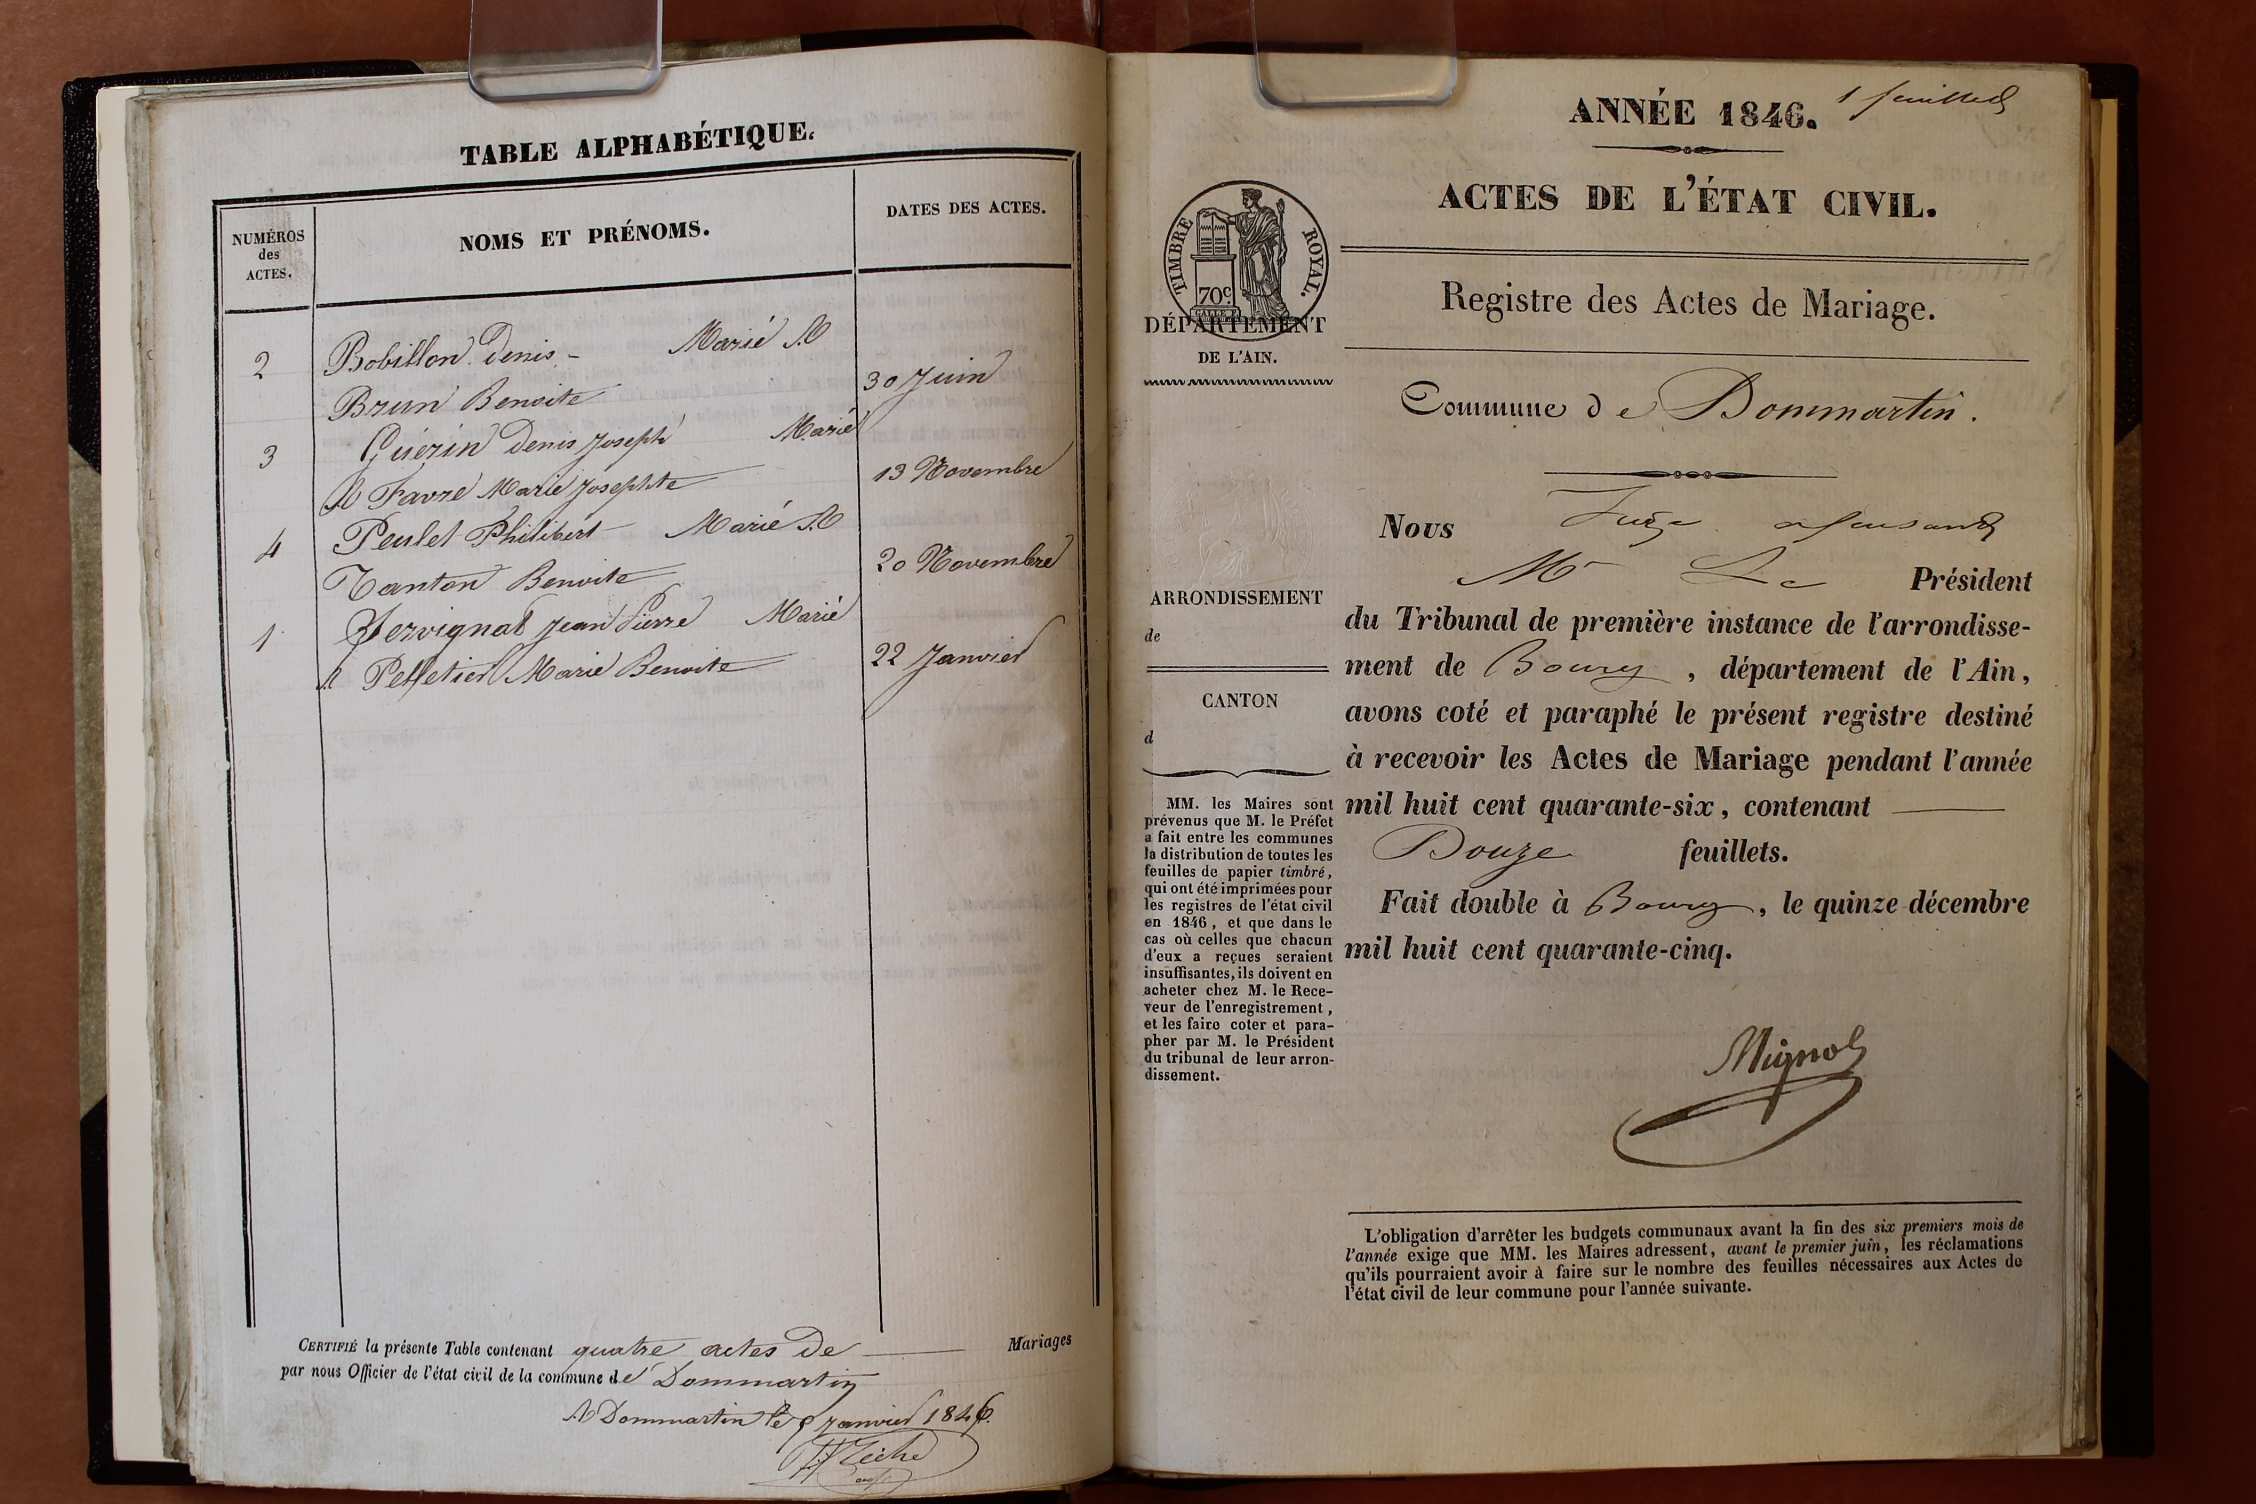 TABLE ALPHABÉTIQUE.
NUMÉROS
des
ACTES.
NOMS ET PRÉNOMS.
DATES DES ACTES.
2 Bobillon Denis - Marié A
Brun Benoite 30 Juin
3 Guérin Denis Joseph Marié
A Favre Marie Josephte 13 Novembre
4 Peulet Philibert Marié A
Tanton Benoite 20 Novembre
1 Jean Pierre Marié
A Pelletier Marie Benoite 22 Janvier
CERTIFIÉ la présente Table contenant quatre actes De Mariages
par nous Officier de l'état civil de la commune de Dommartin
A Dommartin le janvier 1846.
1 feuillet
ANNÉE 1846.
ACTES DE L'ÉTAT CIVIL.
TIMBRE ROYAL.
70c.
DÉPARTEMENT
DE L'AIN.
Registre des Actes de Mariage.
Commune de Dommartin.
ARRONDISSEMENT
de
CANTON
d
MM. les Maires sont
prévenus que M. le Préfet
a fait entre les communes
la distribution de toutes les
feuilles de papier timbré,
qui ont été imprimées pour
les registres de l'état civil
en 1846, et que dans le
cas où celles que chacun
d'eux a reçues seraient
insuffisantes, ils doivent en
acheter chez M. le Rece-
veur de l'enregistrement,
et les faire coter et para-
pher par M. le Président
du tribunal de leur arron-
dissement.
Nous Juge
Mr Le Président
du Tribunal de première instance de l'arrondisse-
ment de Bourg, département de l'Ain,
avons coté et paraphé le présent registre destiné
à recevoir les Actes de Mariage pendant l'année
mil huit cent quarante-six, contenant
Douze feuillets.
Fait double à Bourg, le quinze décembre
mil huit cent quarante-cinq.
Mignot
L'obligation d'arrêter les budgets communaux avant la fin des six premiers mois de
l'année exige que MM. les Maires adressent, avant le premier juin, les réclamations
qu'ils pourraient avoir à faire sur le nombre des feuilles nécessaires aux Actes de
l'état civil de leur commune pour l'année suivante.